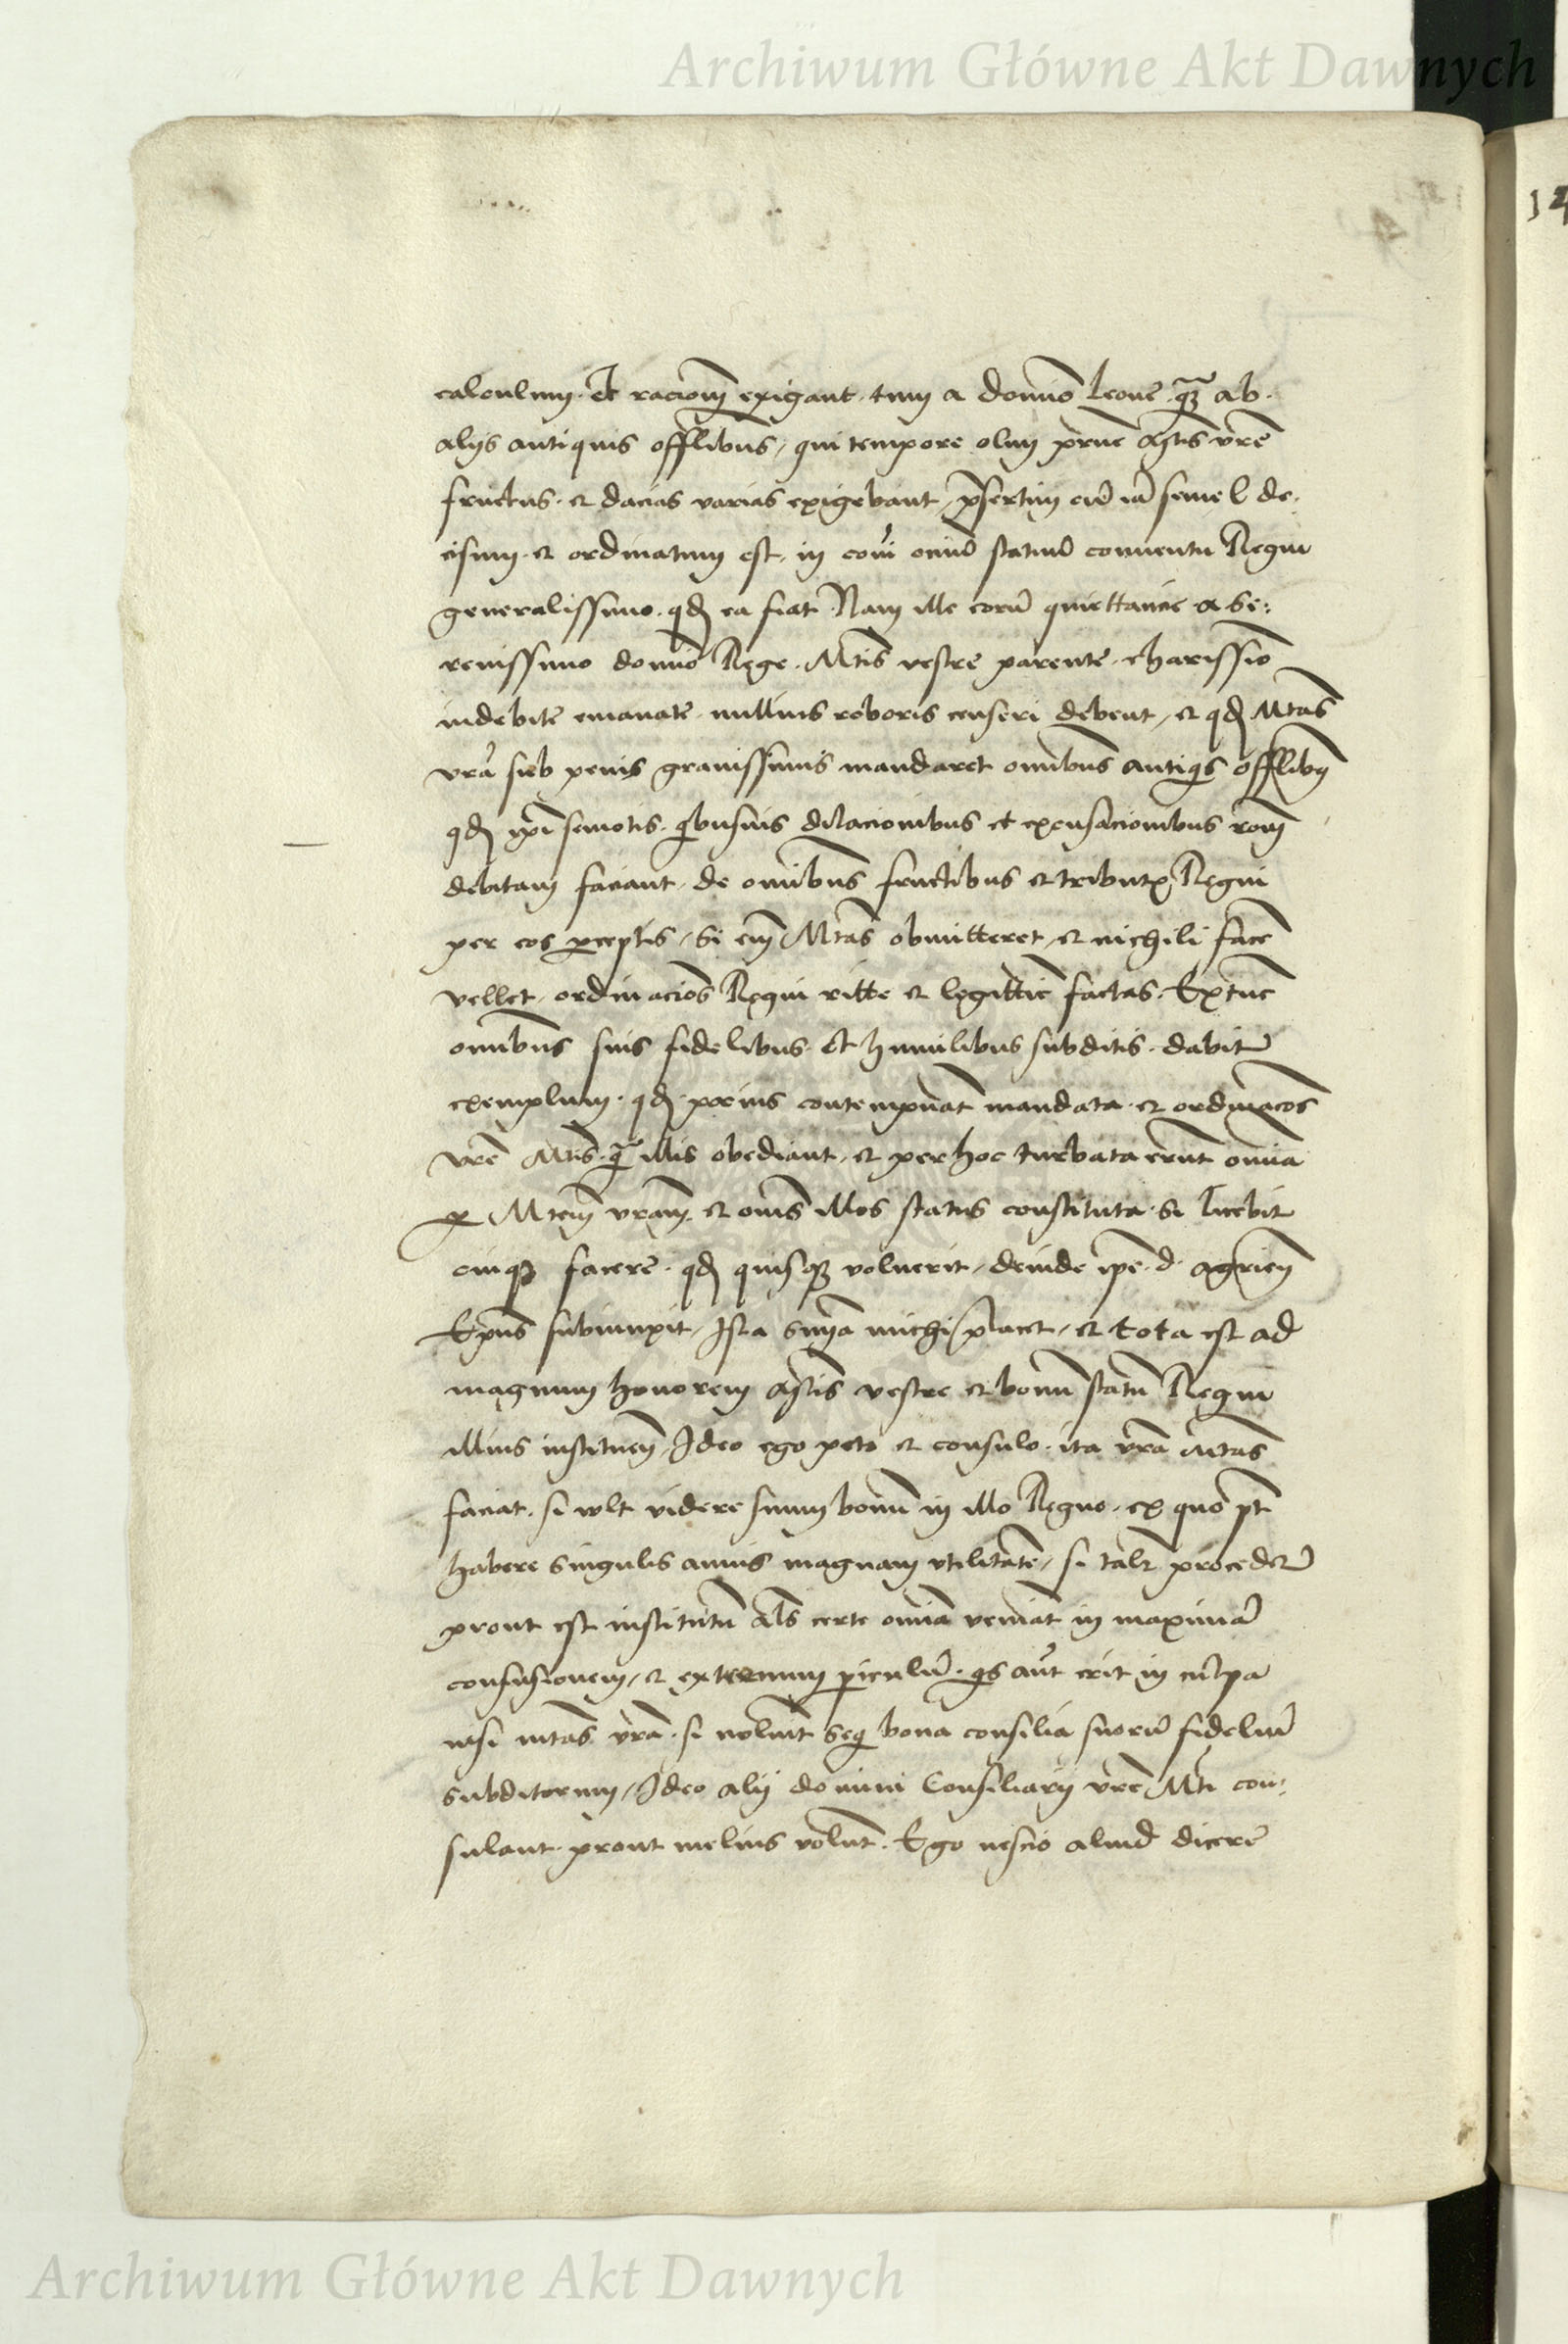 Archiwum Główne Akt Dawnych
calculum · et racionem exigant · tum a domino Leone · quam ab ·
alijs antiquis offlibus, qui tempore olim Mtis vre
fructus · et dacias varias exigebant, presertim cum iam semel de:
cisum · et ordinatum est, in statuum conuentu Regni
generalissimo · qd ea fiat · Nam ille eorum quiettancie a Se:
renissimo domino Rege · Mtis vestre parente · charissimo
indebite emanate · nullius roboris censeri debent, et qd Mtas
vra sub penis grauissimis mandaret omnibus antiquis offlibus
qd ipi semotis · quibusuis dilacionibus et excusacionibus rom
debitam faciant · de omnibus fructibus et tributis Regni
per eos perceptis, Si em Mtas obmitteret, et nichili face
vellet · ordinacios Regni ritte et legittime factas · Extunc
omnibus suis fidelibus · et humilibus subditis · dabitur
exemplum · qd pocius contempnat mandata · et ordinacos
vre Mtis · quam illis obediant, et per hoc turbata erunt omnia
per Mtem vram · et omes illos status constituta · Si licebit
cuiqz facere · qd quisqz voluerit, deinde ipe · d · Agrien
Epus subiunxit, Ista sententia michi placet, et tota est ad
magnum honorem Mtis vestre et bonum statum Regni
illius instituen, Ideo ego peto et consulo · ita vra Mtas
faciat · si wlt videre suum bonum in illo Regno · ex quo pt
habere singulis annis magnam vtilitate, si talr procedetur
prout est institutum als certe omnia veniat in maximam
confusionem, et extremum periculum · quis aut erit in culpa
nisi mtas vra · si nolunt sequi bona consilia suorum fidelium
subditorum, Ideo alij domini Consiliarij vre Mti con:
sulant · prout melius volunt · Ego nescio aliud dicere
Archiwum Główne Akt Dawnych